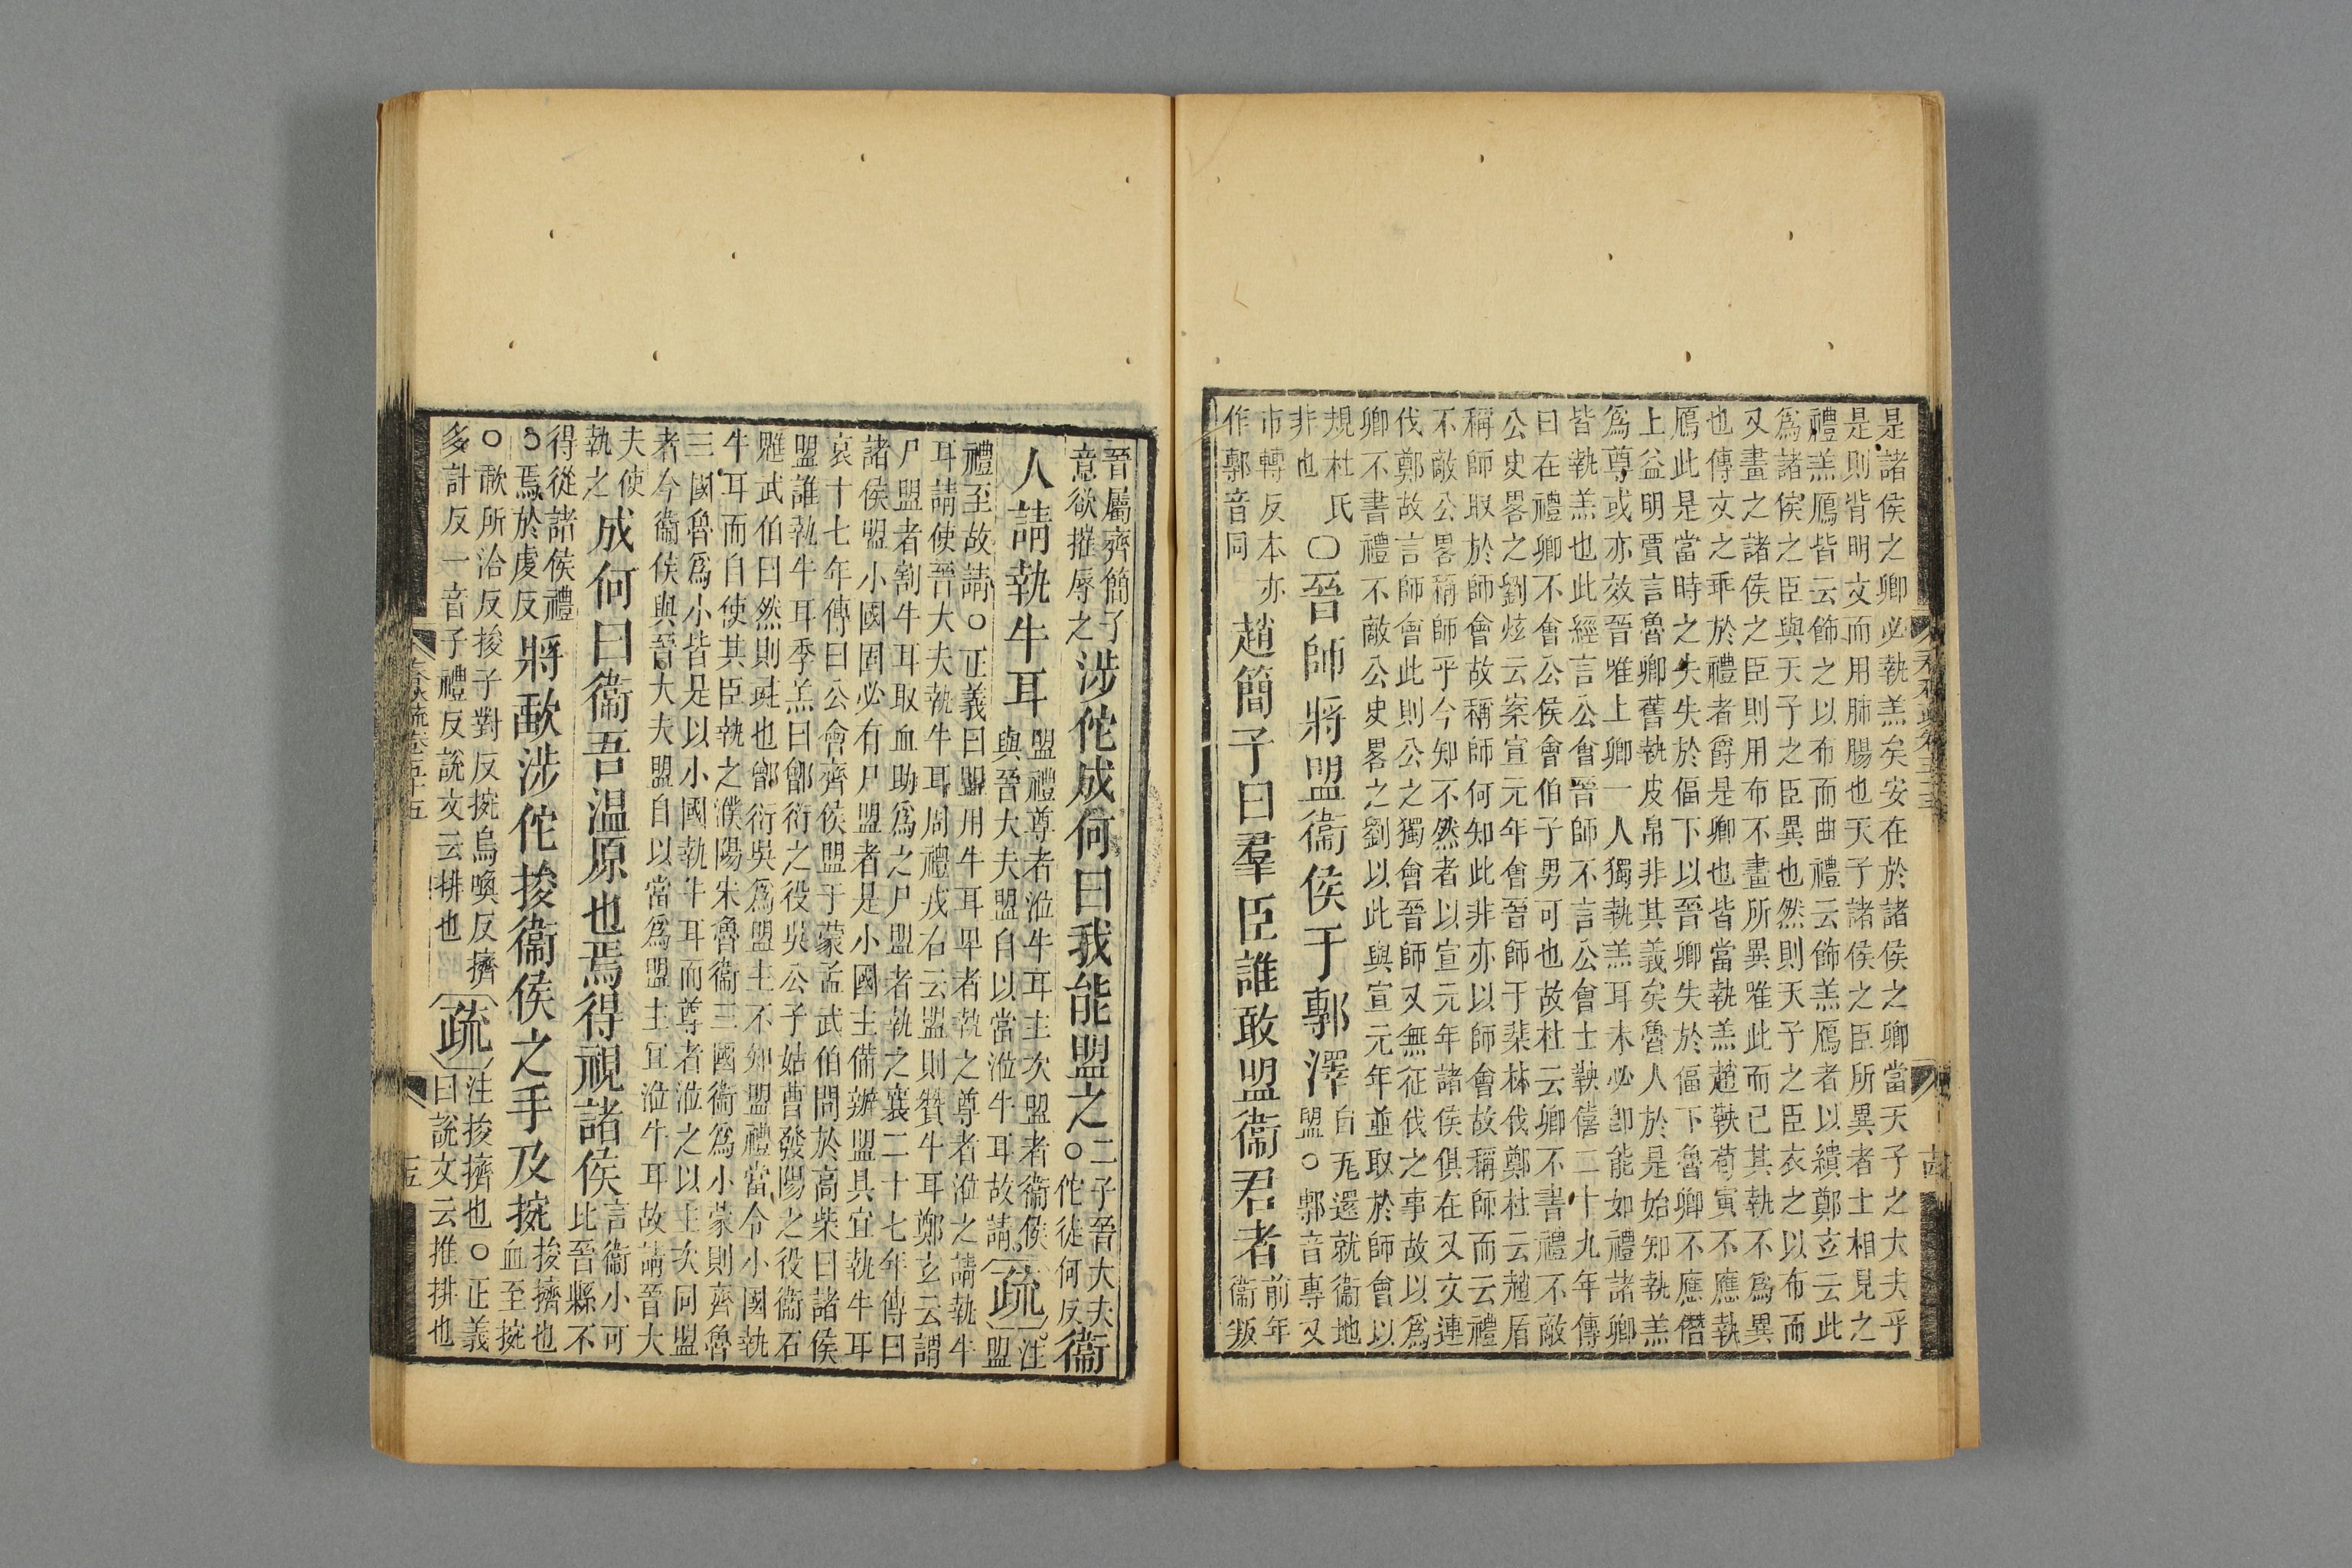 是諸侯之卿必執羔矣安在於諸侯之卿當天子之大夫乎
是則背明文而用肺腸也天子諸侯之臣所異者士相見之
禮羔鴈皆云飾之以布而曲禮云飾羔鴈者以繢鄭玄云此
為諸侯之臣與天子之臣異也然則天子之臣衣之以布而
又畫之諸侯之臣則用布不畫所異唯此而已其執不為異
也傳文之乖於禮者爵是卿也皆當執羔趙鞅荀寅不應執
鴈此是當時之失失於偪下以晉卿失於偪下魯卿不應僭
上益明賈言魯卿舊執皮帛非其義矣魯人於是始知執羔
為尊或亦效晉唯上卿一人獨執羔耳未必卽能如禮諸卿
皆執羔也此經言公會晉師不言公會士鞅僖二十九年傳
曰在禮卿不會公侯會伯子男可也故杜云卿不書禮不敵
公史畧之劉炫云案宣元年會晉師于棐林伐鄭杜云趙盾
稱師取於師會故稱師何知此非亦以師會故稱師而云禮
不敵公畧稱師乎今知不然者以宣元年諸侯俱在又文連
伐鄭故言師會此則公之獨會晉師又無征伐之事故以為
卿不書禮不敵公史畧之劉以此與宣元年並取於師會以
規杜氏
非也
〇晉師將盟衞侯于鄟澤
自瓦還就衞地
盟○鄟音專又
市轉反本亦
作鄟音同
趙簡子曰羣臣誰敢盟衞君者
前年
衞叛
晉屬齊簡子
意欲摧辱之
涉佗成何曰我能盟之
二子晉大夫
○佗徒何反
衞
人請執牛耳
盟禮尊者涖牛耳主次盟者衞侯
與晉大夫盟自以當涖牛耳故請
疏
注
盟
禮至故請○正義曰盟用牛耳卑者執之尊者涖之請執牛
耳請使晉大夫執牛耳周禮戎右云盟則贊牛耳鄭玄云謂
尸盟者割牛耳取血助為之尸盟者執之襄二十七年傳曰
諸侯盟小國固必有尸盟者是小國主備辦盟具宜執牛耳
哀十七年傳曰公會齊侯盟于蒙孟武伯問於高柴曰諸侯
盟誰執牛耳季羔曰鄫衍之役吳公子姑曹發陽之役衞石
魋武伯曰然則彘也鄫衍吳為盟主不知盟禮當令小國執
牛耳而自使其臣執之濮陽朱魯衞三國衞為小蒙則齊魯
三國魯為小皆是以小國執牛耳而尊者涖之以主次同盟
者今衞侯與晉大夫盟自以當為盟主宜涖牛耳故請晉大
夫使
執之
成何曰衞吾温原也焉得視諸侯
言衞小可
比晉縣不
得從諸侯禮
○焉於虔反
將歃涉佗捘衞侯之手及捥
捘擠也
血至捥
○歃所洽反捘子對反捥烏喚反擠
多計反一音子禮反說文云排也
疏
注捘擠也○正義
曰說文云推排也